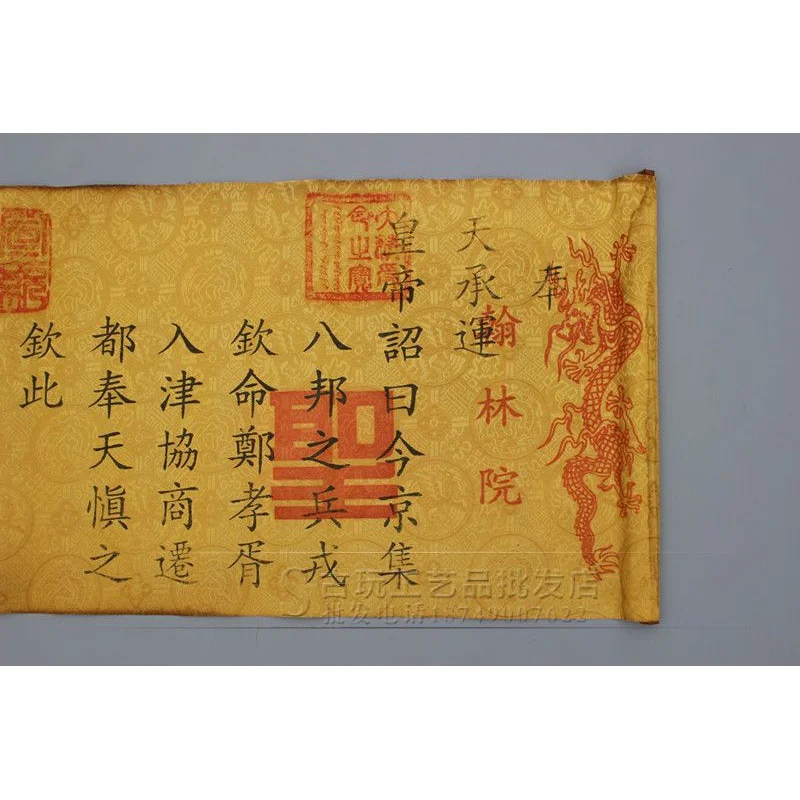 奉
天承運
皇帝詔曰今京集
八邦之兵戎
欽命鄭孝胥
入津協商遷
都奉天慎之
欽此
翰林院
聖
古玩工艺品批发店
批发电话18749007622